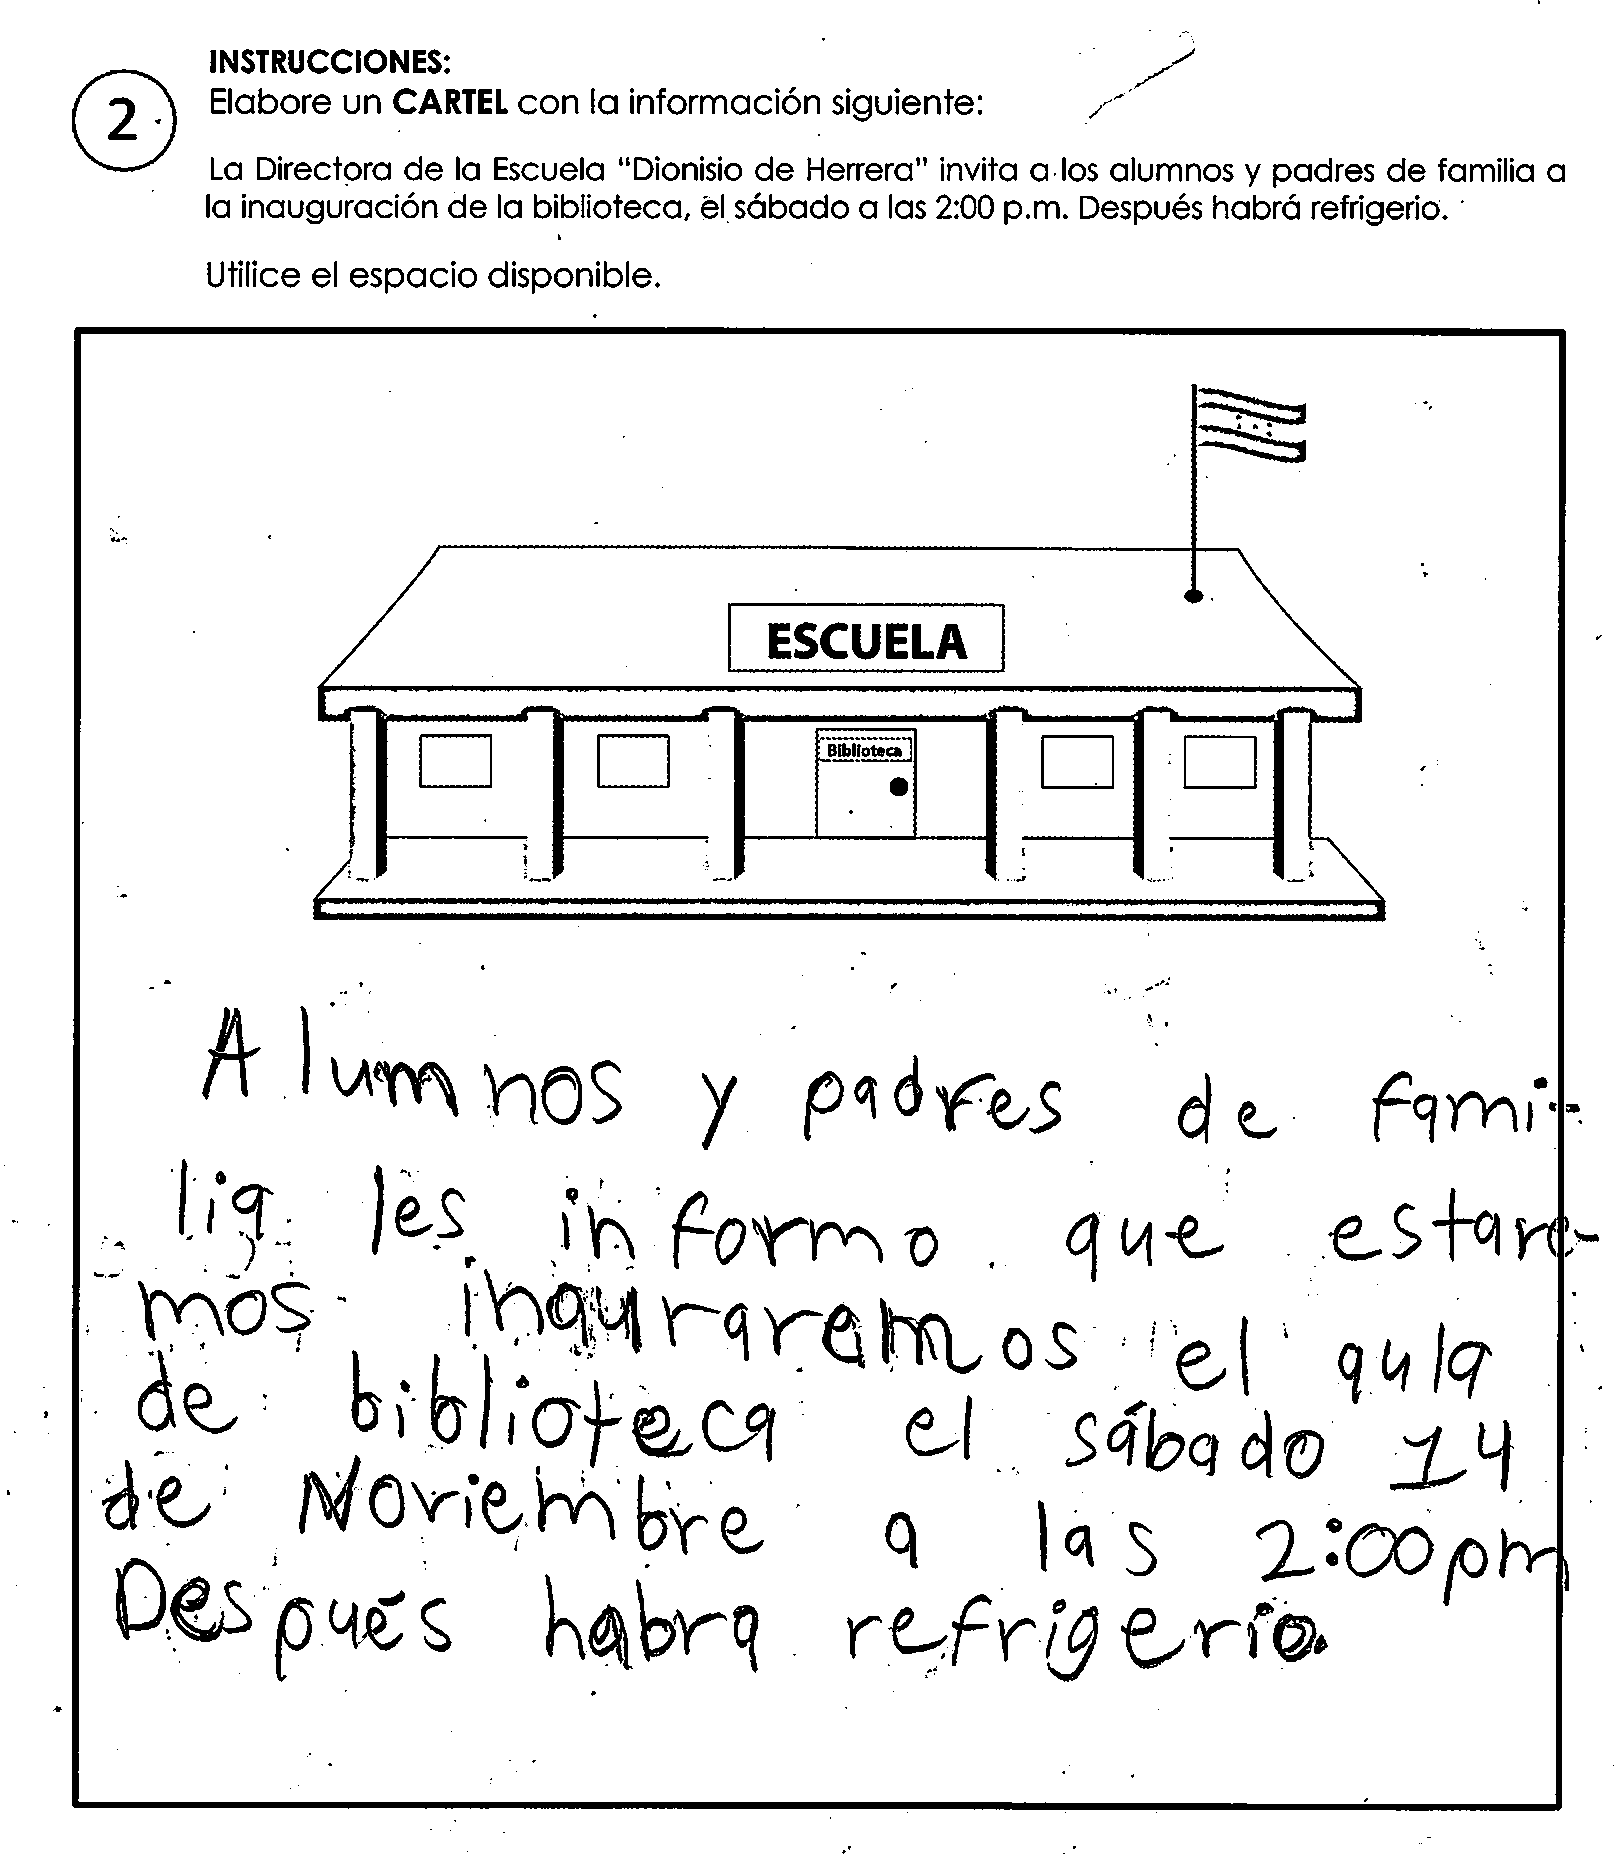 INSTRUCCIONES:
2
Elabore un CARTEL con la información siguiente:
La Directora de la Escuela "Dionisio de Herrera" invita a los alumnos y padres de familia a
la inauguración de la biblioteca, el sábado a las 2:00 p.m. Después habrá refrigerio.
Utilice el espacio disponible.
ESCUELA
Biblioteca
Alumnos y padres de fami-
lia les informo que estare-
mos inauraremos el aula
de biblioteca el sábado 14
de Noviembre a las 2:00pm
Después habra refrigerio.